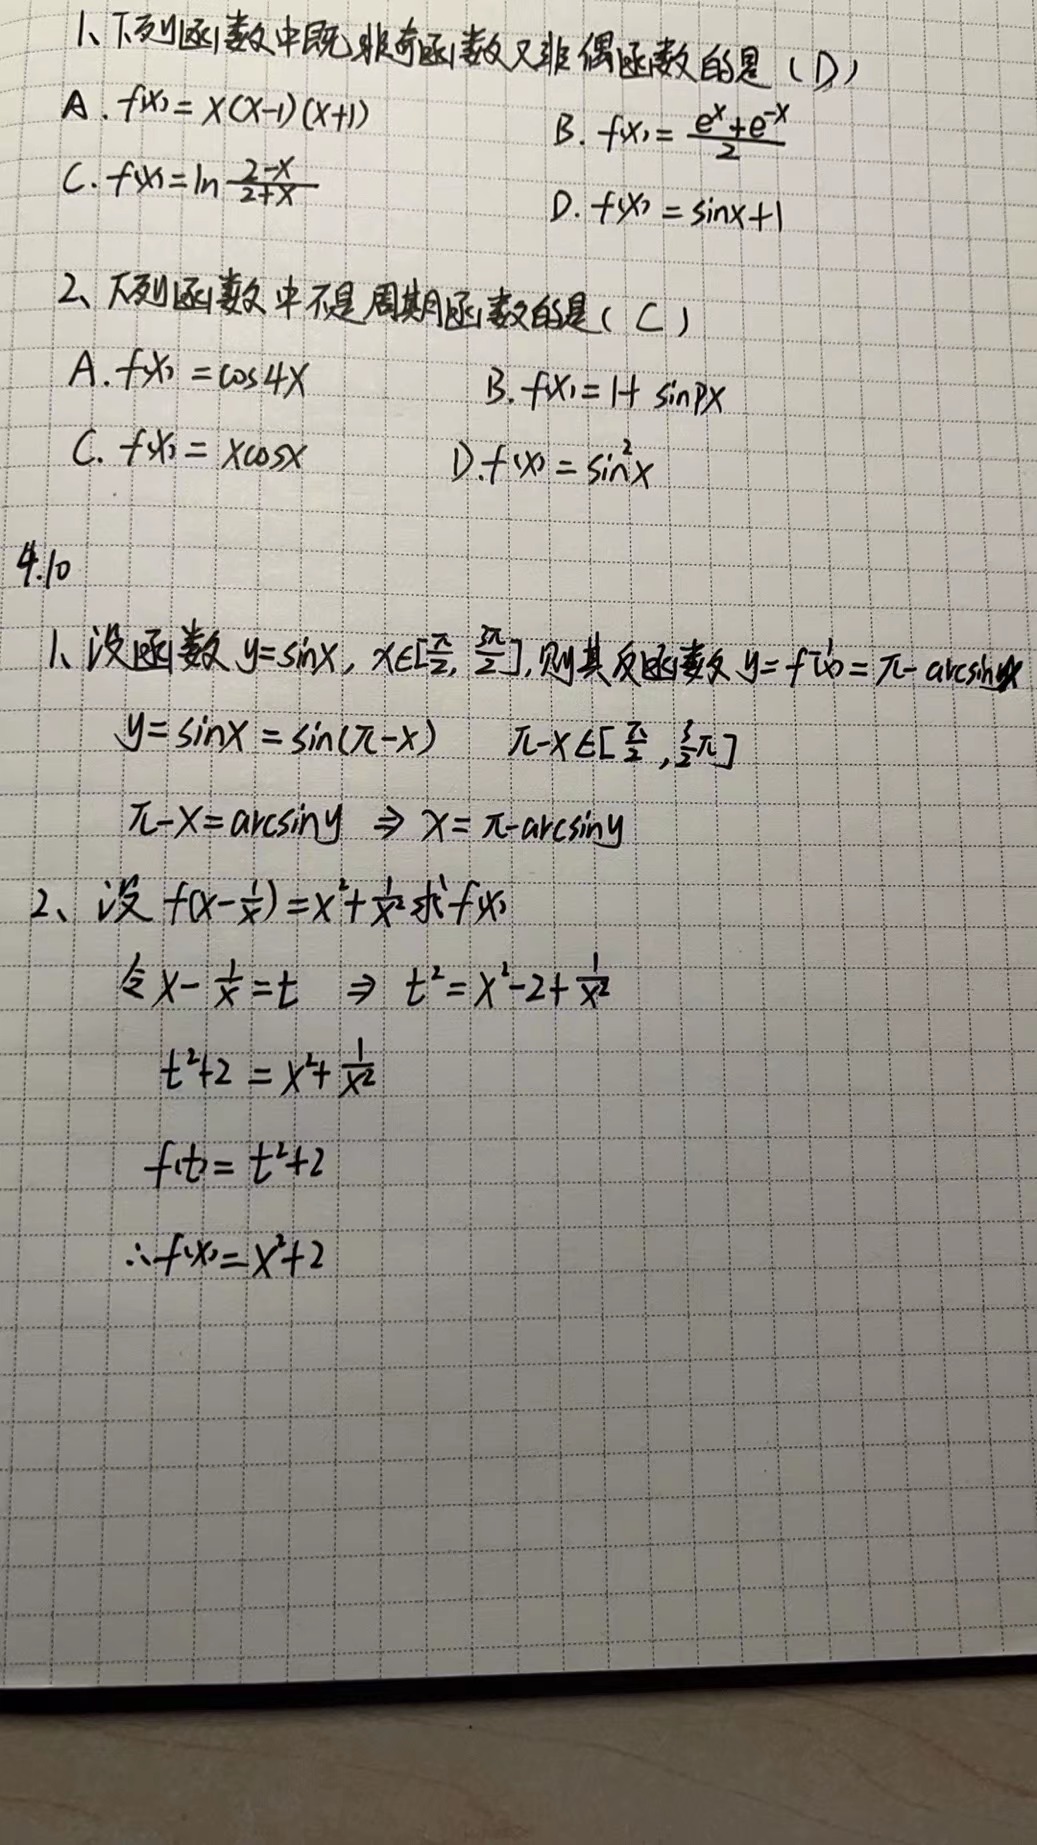 1、下列函数中既非奇函数又非偶函数的是（D）
A. f(x) = x(x-1)(x+1)
B. f(x) = (e^x+e^-x)/2
C. f(x) = ln (2-x)/(2+x)
D. f(x) = sinx+1
2、下列函数中不是周期函数的是（C）
A. f(x) = cos4x
B. f(x) = 1+ sinpx
C. f(x) = xcosx
D. f(x) = sin²x
4.10
1、设函数 y=sinx, x∈[π/2, 3π/2], 则其反函数 y=f⁻¹(x) = π- arcsinx
y=sinx = sin(π-x) π-x∈[π/2, 3/2π]
π-x=arcsiny ⇒ x= π-arcsiny
2、设 f(x-1/x) = x²+1/x² 求 f(x)
令 x- 1/x = t ⇒ t² = x²-2+1/x²
t²+2 = x²+1/x²
f(t) = t²+2
∴f(x) = x²+2